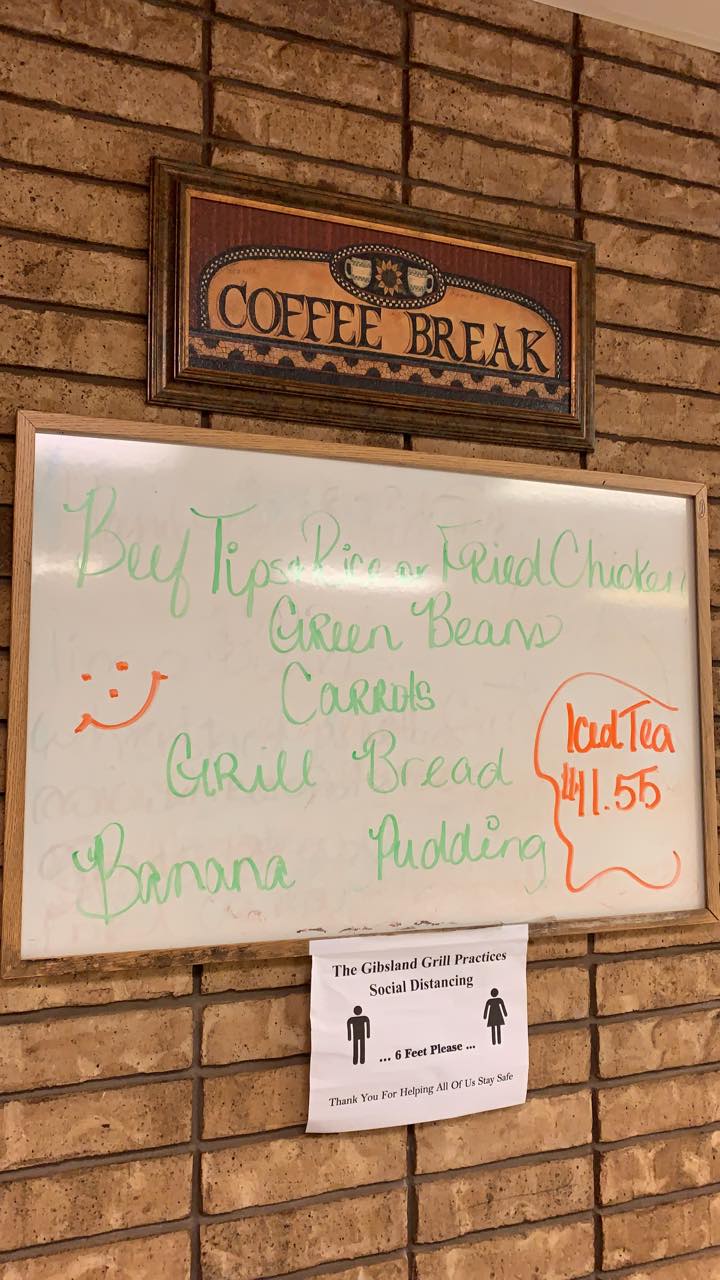 COFFEE BREAK
Beef Tips & Rice or Fried Chicken
Green Beans
Carrots
Grill Bread
Banana Pudding
Iced Tea
$1.55
The Gibsland Grill Practices
Social Distancing
... 6 Feet Please ...
Thank You For Helping All Of Us Stay Safe